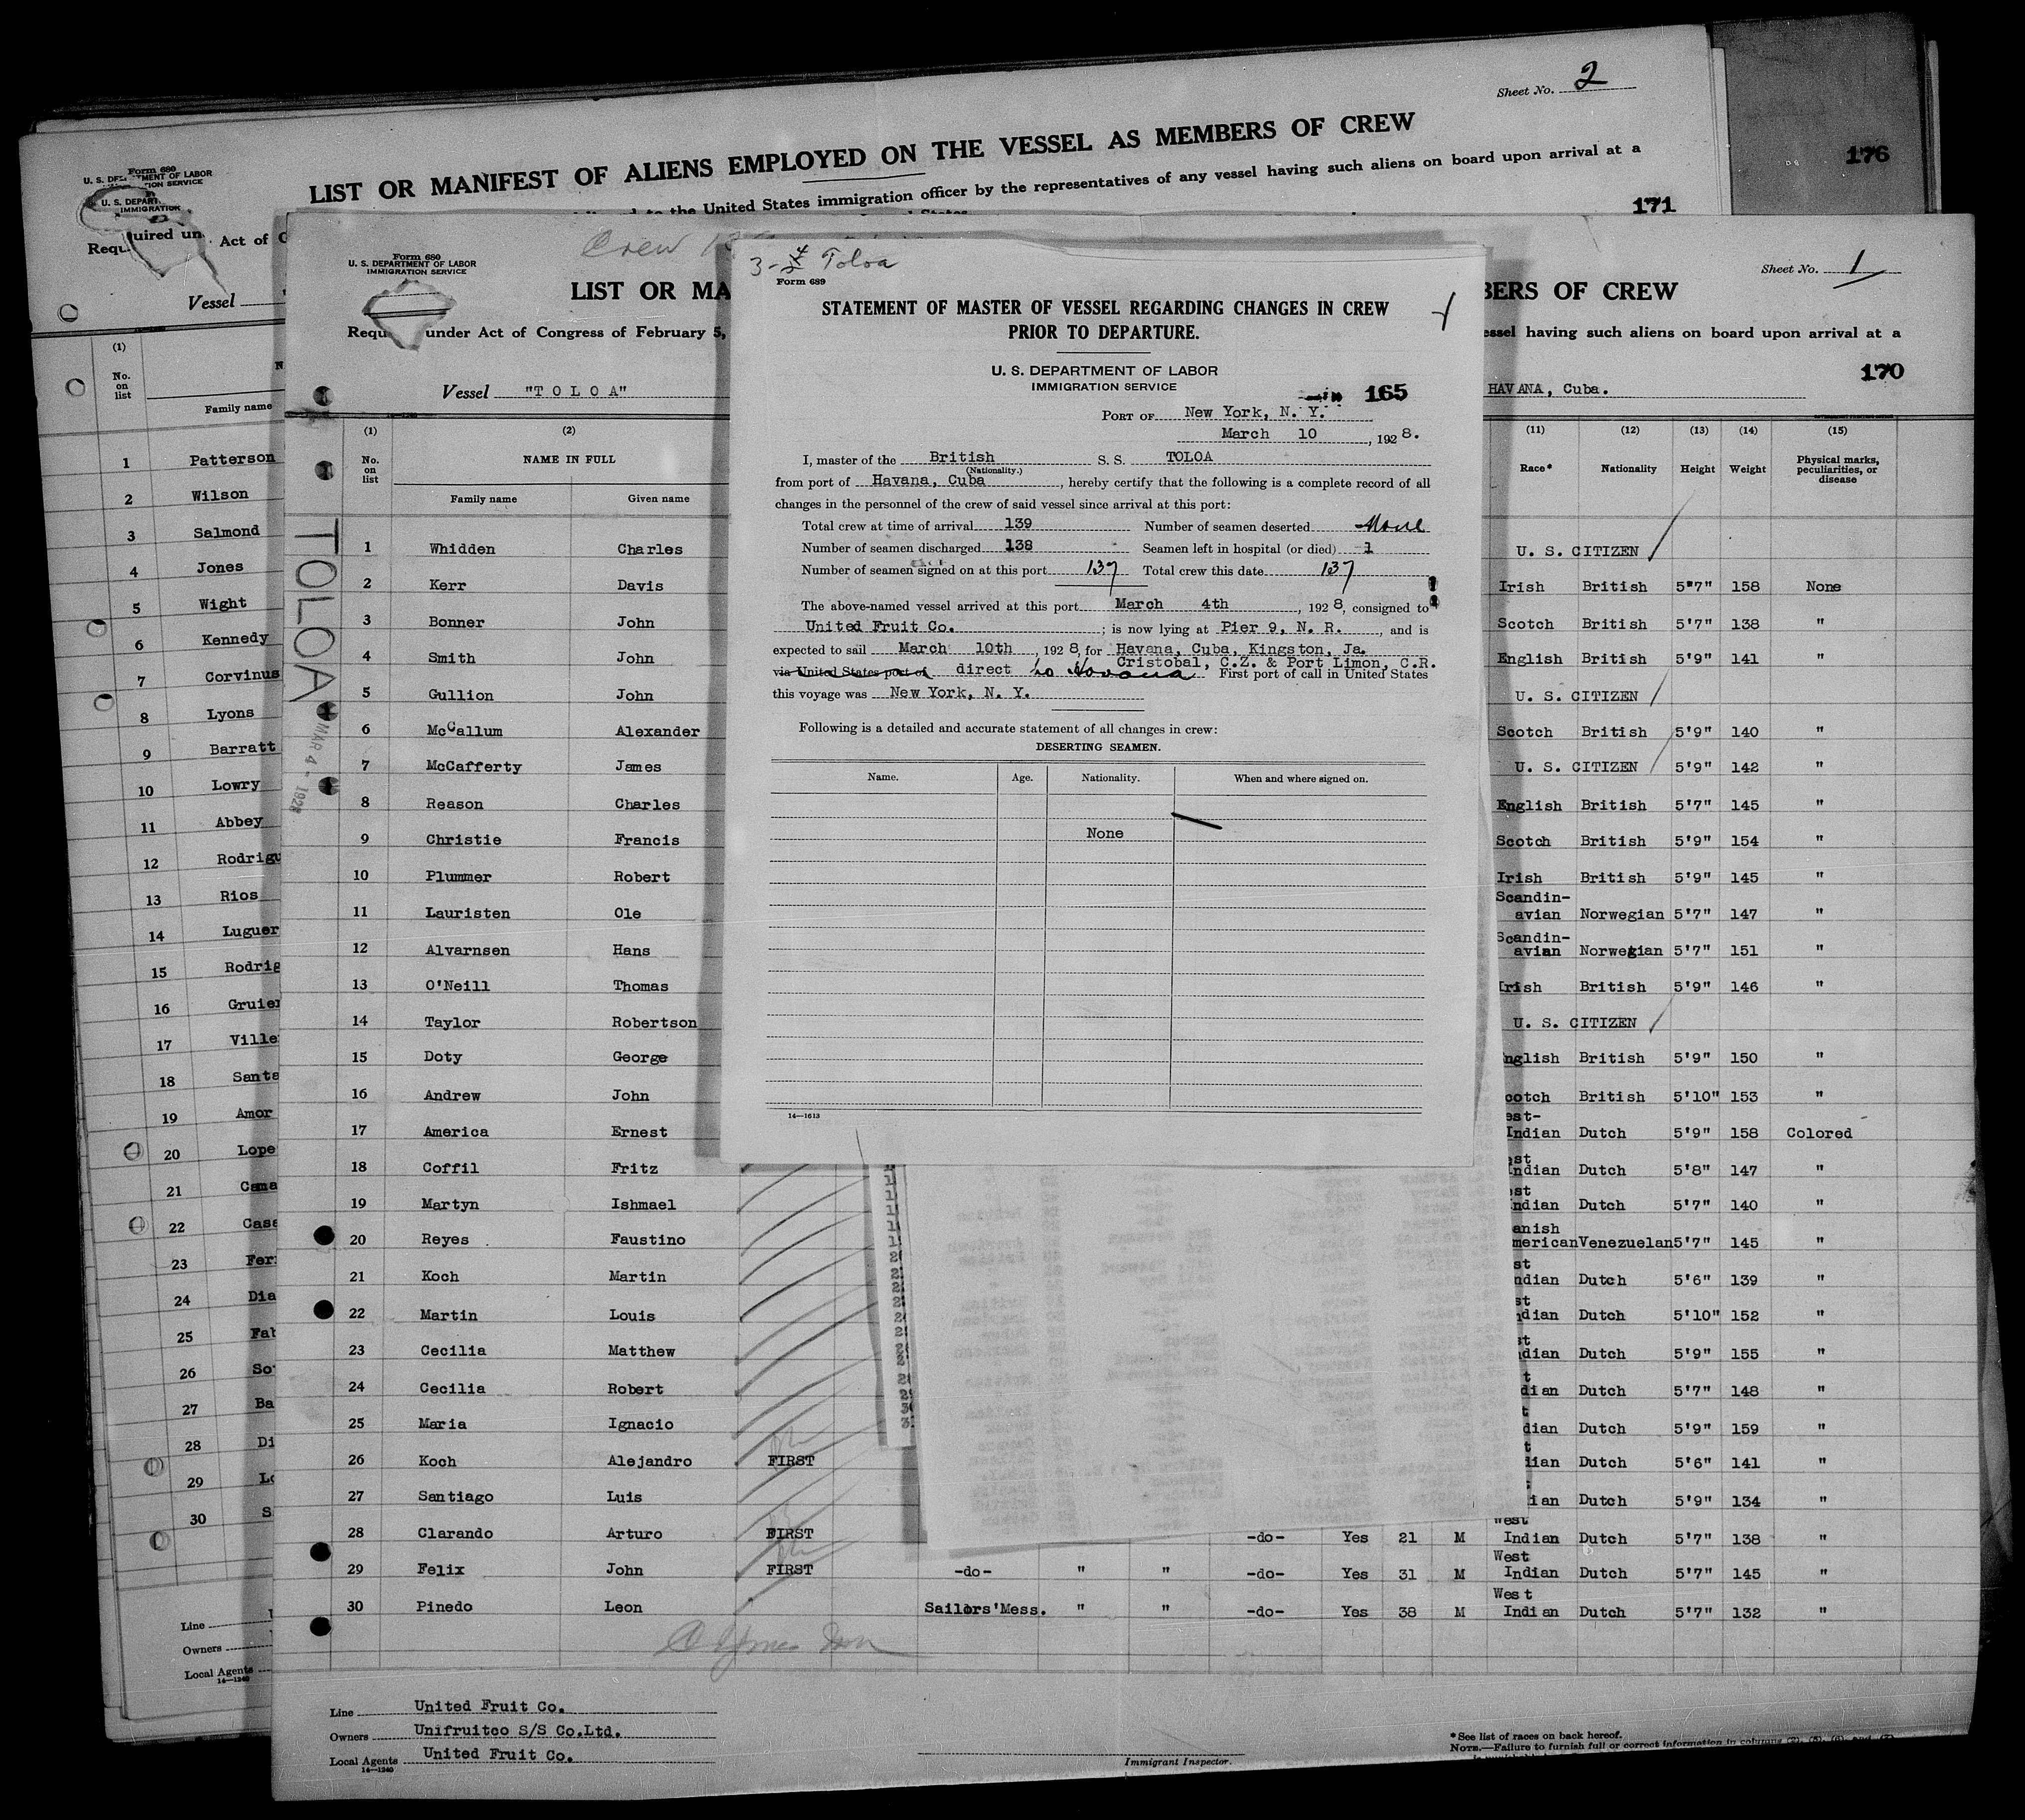 Sheet No. 2
Form 680
U. S. DEPARTMENT OF LABOR
IMMIGRATION SERVICE
LIST OR MANIFEST OF ALIENS EMPLOYED ON THE VESSEL AS MEMBERS OF CREW
to the United States immigration officer by the representatives of any vessel having such aliens on board upon arrival at a
Act of
171
176
Vessel
(1)
No.
on
list
Family name
1 Patterson
2 Wilson
3 Salmond
4 Jones
5 Wight
6 Kennedy
7 Corvinus
8 Lyons
9 Barratt
10 Lowry
11 Abbey
12 Rodrigu
13 Rios
14 Luguer
15 Rodrig
16 Gruier
17 Ville
18 Santa
19 Amor
20 Lope
21 Cama
22 Case
23 Fer
24 Dia
25 Fab
26 So
27 Ba
28 Di
29 Lo
30 S
Line
Owners
Local Agents
14—1240
Crew
Form 680
U. S. DEPARTMENT OF LABOR
IMMIGRATION SERVICE
Sheet No. 1
LIST OR MA
BERS OF CREW
Requ under Act of Congress of February 5,
essel having such aliens on board upon arrival at a
170
Vessel "T O L O A"
HAVANA, Cuba.
TOLOA
MAR 4 - 1928
(1) (2) (11) (12) (13) (14) (15)
No. on list NAME IN FULL Race* Nationality Height Weight Physical marks, peculiarities, or disease
Family name Given name
1 Whidden Charles U. S. CITIZEN
2 Kerr Davis Irish British 5'7" 158 None
3 Bonner John Scotch British 5'7" 138 "
4 Smith John English British 5'9" 141 "
5 Gullion John U. S. CITIZEN "
6 McCallum Alexander Scotch British 5'9" 140 "
7 McCafferty James U. S. CITIZEN 5'9" 142 "
8 Reason Charles English British 5'7" 145 "
9 Christie Francis Scotch British 5'9" 154 "
10 Plummer Robert Irish British 5'9" 145 "
11 Lauristen Ole Scandin-avian Norwegian 5'7" 147 "
12 Alvarnsen Hans Scandin-avian Norwegian 5'7" 151 "
13 O'Neill Thomas Irish British 5'9" 146 "
14 Taylor Robertson U. S. CITIZEN
15 Doty George nglish British 5'9" 150 "
16 Andrew John cotch British 5'10" 153 "
17 America Ernest est-Indian Dutch 5'9" 158 Colored
18 Coffil Fritz est ndian Dutch 5'8" 147 "
19 Martyn Ishmael est ndian Dutch 5'7" 140 "
20 Reyes Faustino anish merican Venezuelan 5'7" 145 "
21 Koch Martin st ndian Dutch 5'6" 139 "
22 Martin Louis st dian Dutch 5'10" 152 "
23 Cecilia Matthew st dian Dutch 5'9" 155 "
24 Cecilia Robert t dian Dutch 5'7" 148 "
25 Maria Ignacio t dian Dutch 5'9" 159 "
26 Koch Alejandro FIRST t dian Dutch 5'6" 141 "
27 Santiago Luis ian Dutch 5'9" 134 "
28 Clarando Arturo FIRST -do- Yes 21 M West Indian Dutch 5'7" 138 "
29 Felix John FIRST -do- " " -do- Yes 31 M West Indian Dutch 5'7" 145 "
30 Pinedo Leon Sailors'Mess. " " -do- Yes 38 M West Indian Dutch 5'7" 132 "
Line United Fruit Co.
Owners Unifruitco S/S Co.Ltd.
Local Agents United Fruit Co.
14—1240
Immigrant Inspector.
* See list of races on back hereof.
NOTE.—Failure to furnish full or correct information in columns
3-4 Toloa
Form 689
STATEMENT OF MASTER OF VESSEL REGARDING CHANGES IN CREW
PRIOR TO DEPARTURE.
U. S. DEPARTMENT OF LABOR
IMMIGRATION SERVICE
165
PORT OF New York, N. Y.
March 10, 1928.
I, master of the British S. S. TOLOA
(Nationality.)
from port of Havana, Cuba, hereby certify that the following is a complete record of all
changes in the personnel of the crew of said vessel since arrival at this port:
Total crew at time of arrival 139 Number of seamen deserted None
Number of seamen discharged 138 Seamen left in hospital (or died) 1
Number of seamen signed on at this port 137 Total crew this date 137
The above-named vessel arrived at this port March 4th, 1928, consigned to
United Fruit Co. ; is now lying at Pier 9, N. R., and is
expected to sail March 10th, 1928, for Havana, Cuba, Kingston, Ja.
Cristobal, C.Z. & Port Limon, C.R.
via United States port of direct to Havana First port of call in United States
this voyage was New York, N. Y.
Following is a detailed and accurate statement of all changes in crew:
DESERTING SEAMEN.
Name. Age. Nationality. When and where signed on.
None
14—1613